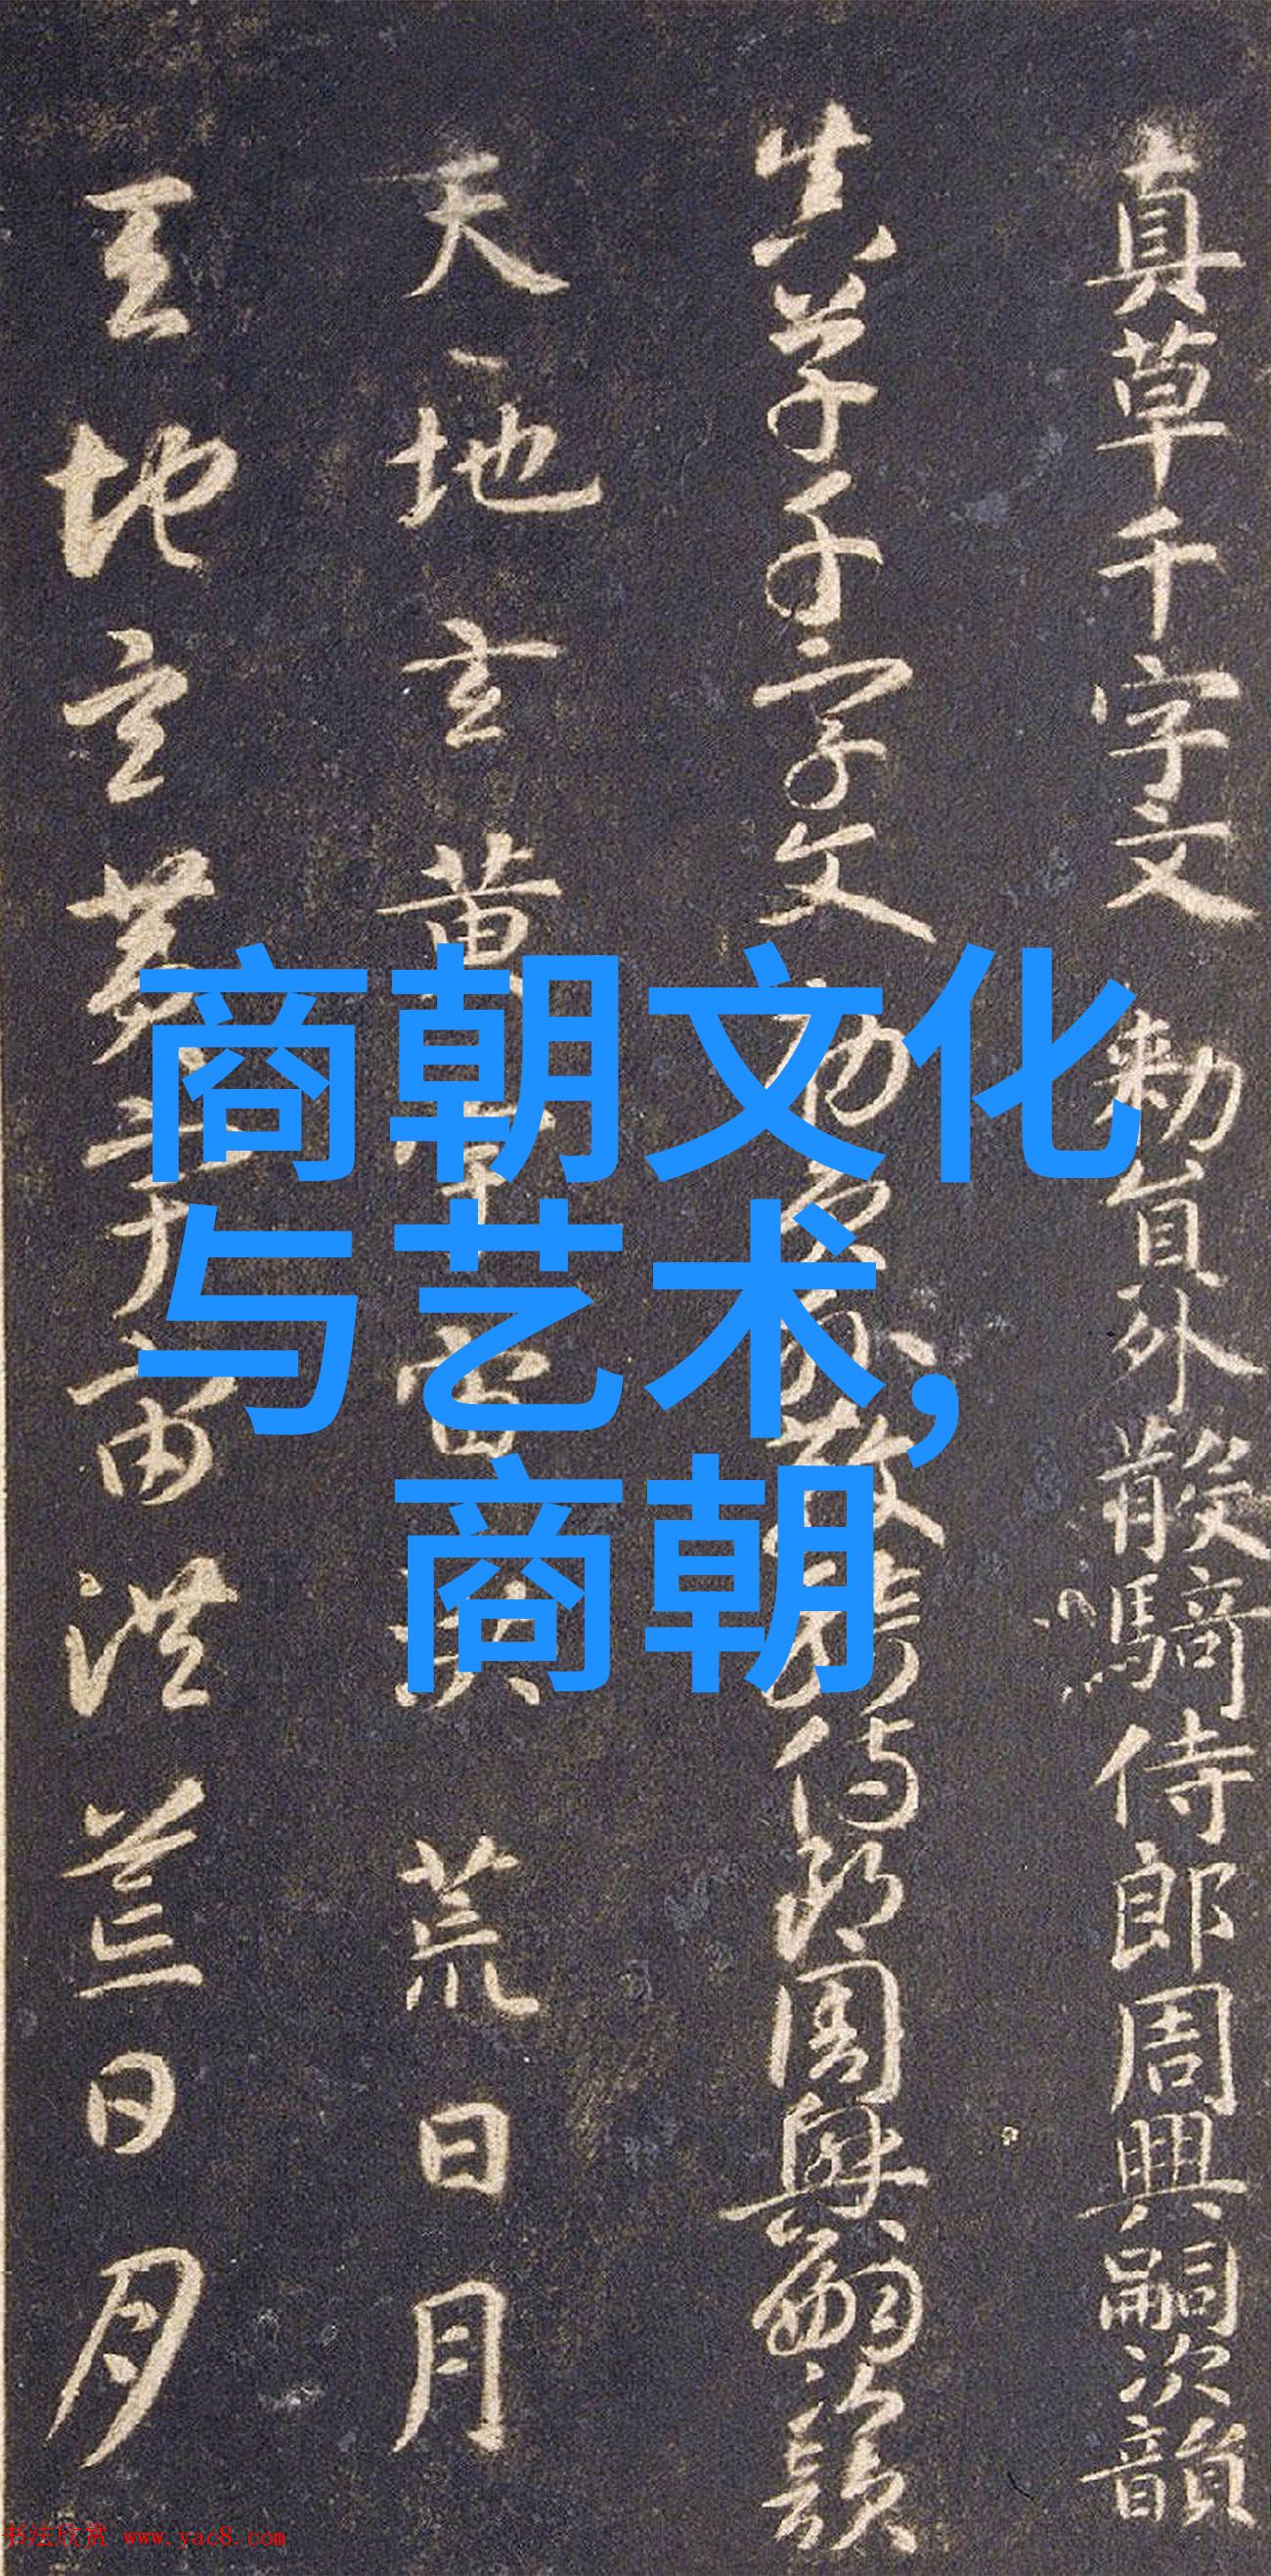 真草千字文 勅員外散騎侍郎周興嗣次韻
真草千字文 勅員外散騎侍郎周興嗣次韻
天地玄黃宇宙洪荒日月
天地玄黃宇宙洪荒日月
商朝文化
与艺术,
商朝
书法欣赏 www.yac8.com